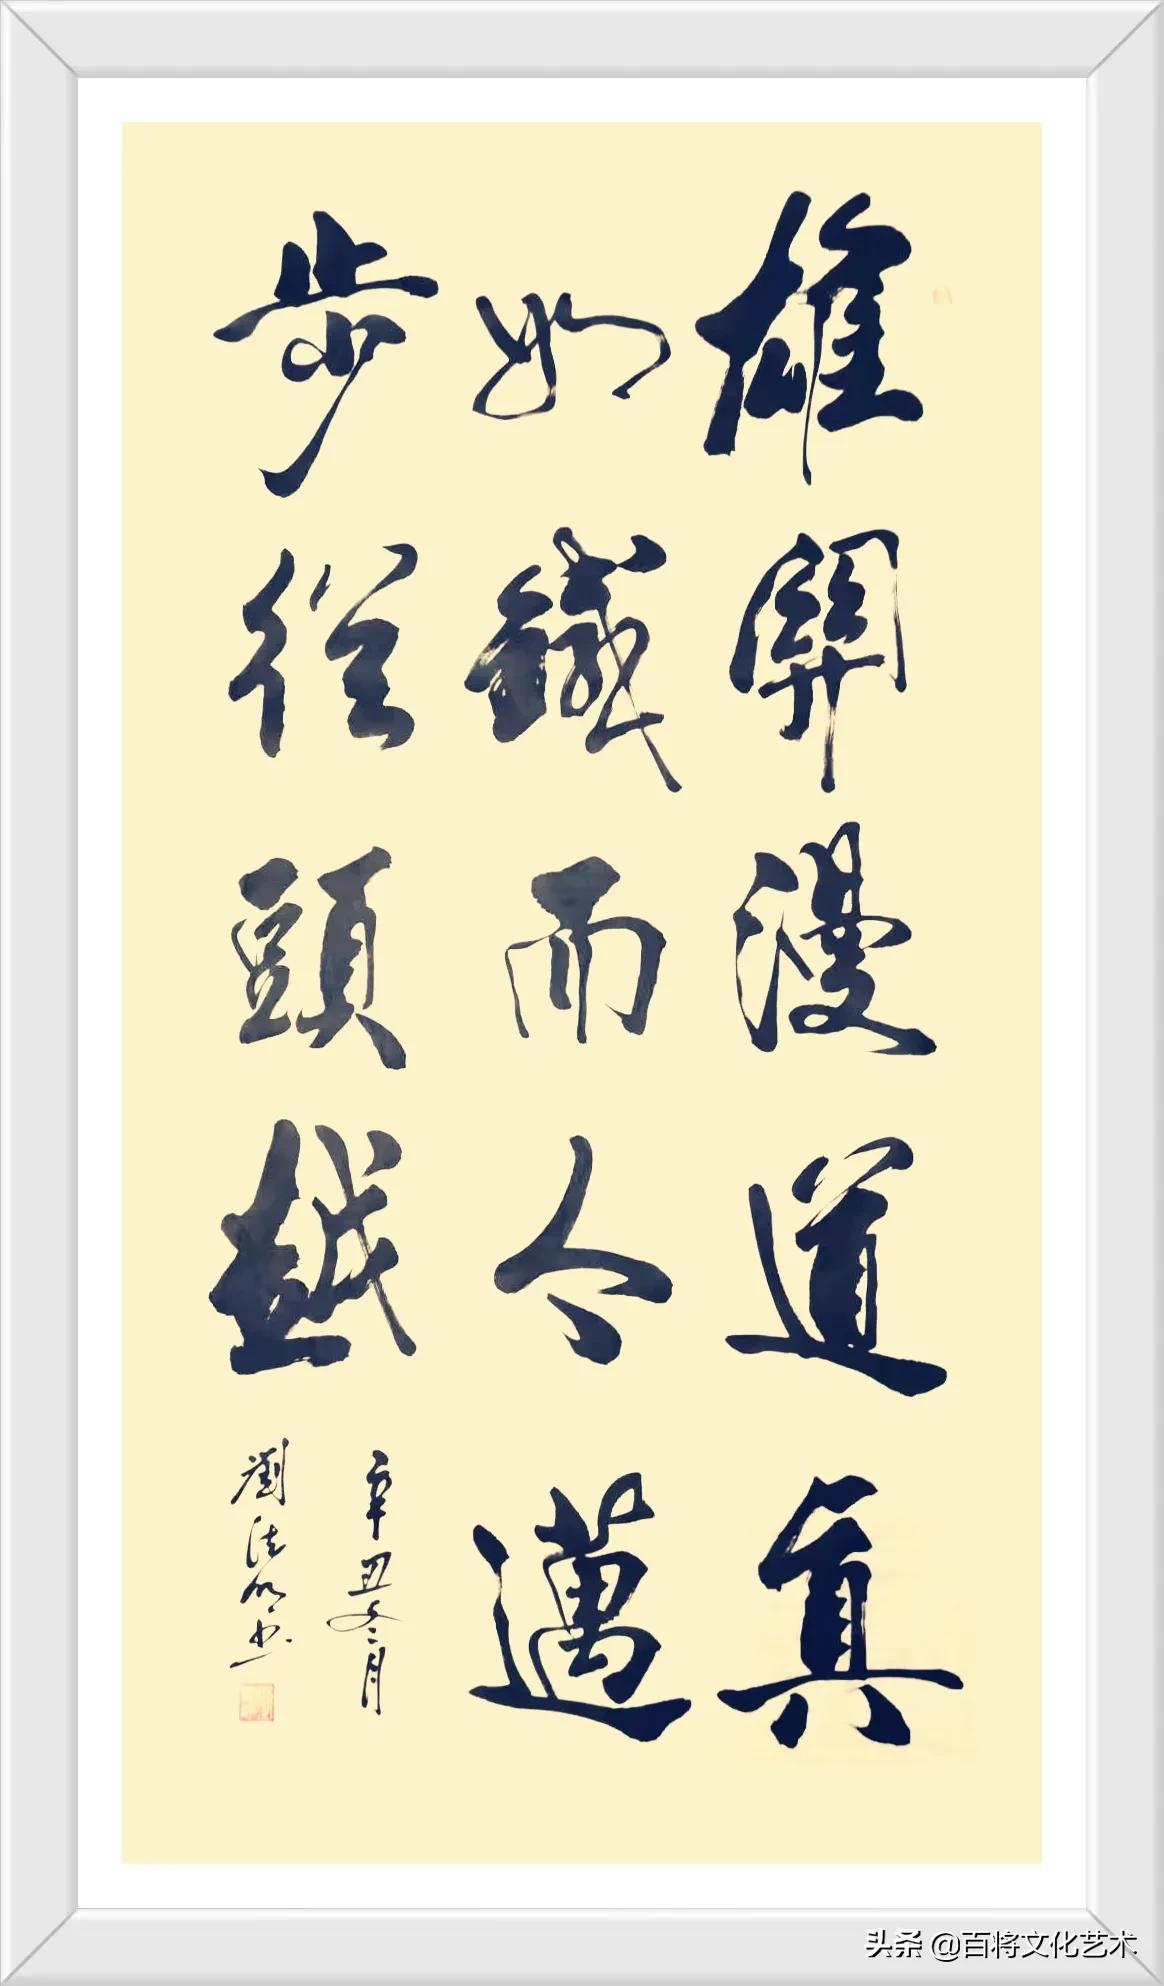 雄關漫道真
如鐵而今邁
步從頭越
辛丑冬月
劉法书
头条 @百将文化艺术